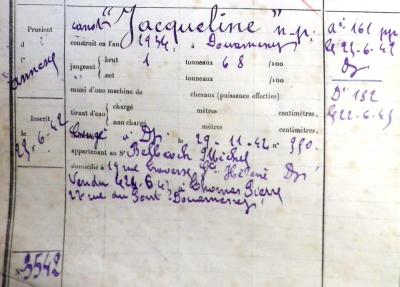 Provient
d
l'annexe
Inscrit
le
29-6-42
N° 3542
canot "Jacqueline" n.p.
construit en l'an 1934, à Douarnenez
jaugeant { brut 1 tonneaux 68 /100
net tonneaux /100
muni d'une machine de chevaux (puissance effective)
tirant d'eau { chargé mètres centimètres.
non chargé mètres centimètres.
à Dz. le 29-11-42 n° 990.
appartenant au Sr Michel
domicilié à 19 rue Traverse Ste Hélène Dz
Vendu le à Thomas Pierre
27 rue du Pont Douarnenez
a° 161 pp
le 29-6-42
Dz
D° 182
le 22-6-45